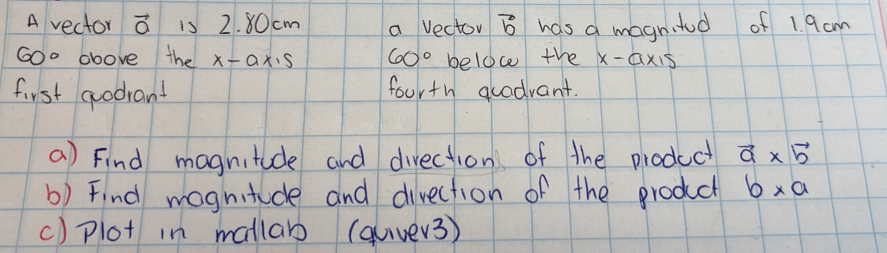 A vector a⃗ is 2.80cm
60° above the x-axis
first quadrant
a vector b⃗ has a magnitud of 1.9cm
60° below the x-axis
fourth quadrant.
a) Find magnitude and direction of the product a⃗ x b⃗
b) Find magnitude and direction of the product b x a
c) Plot in matlab (quiver3)